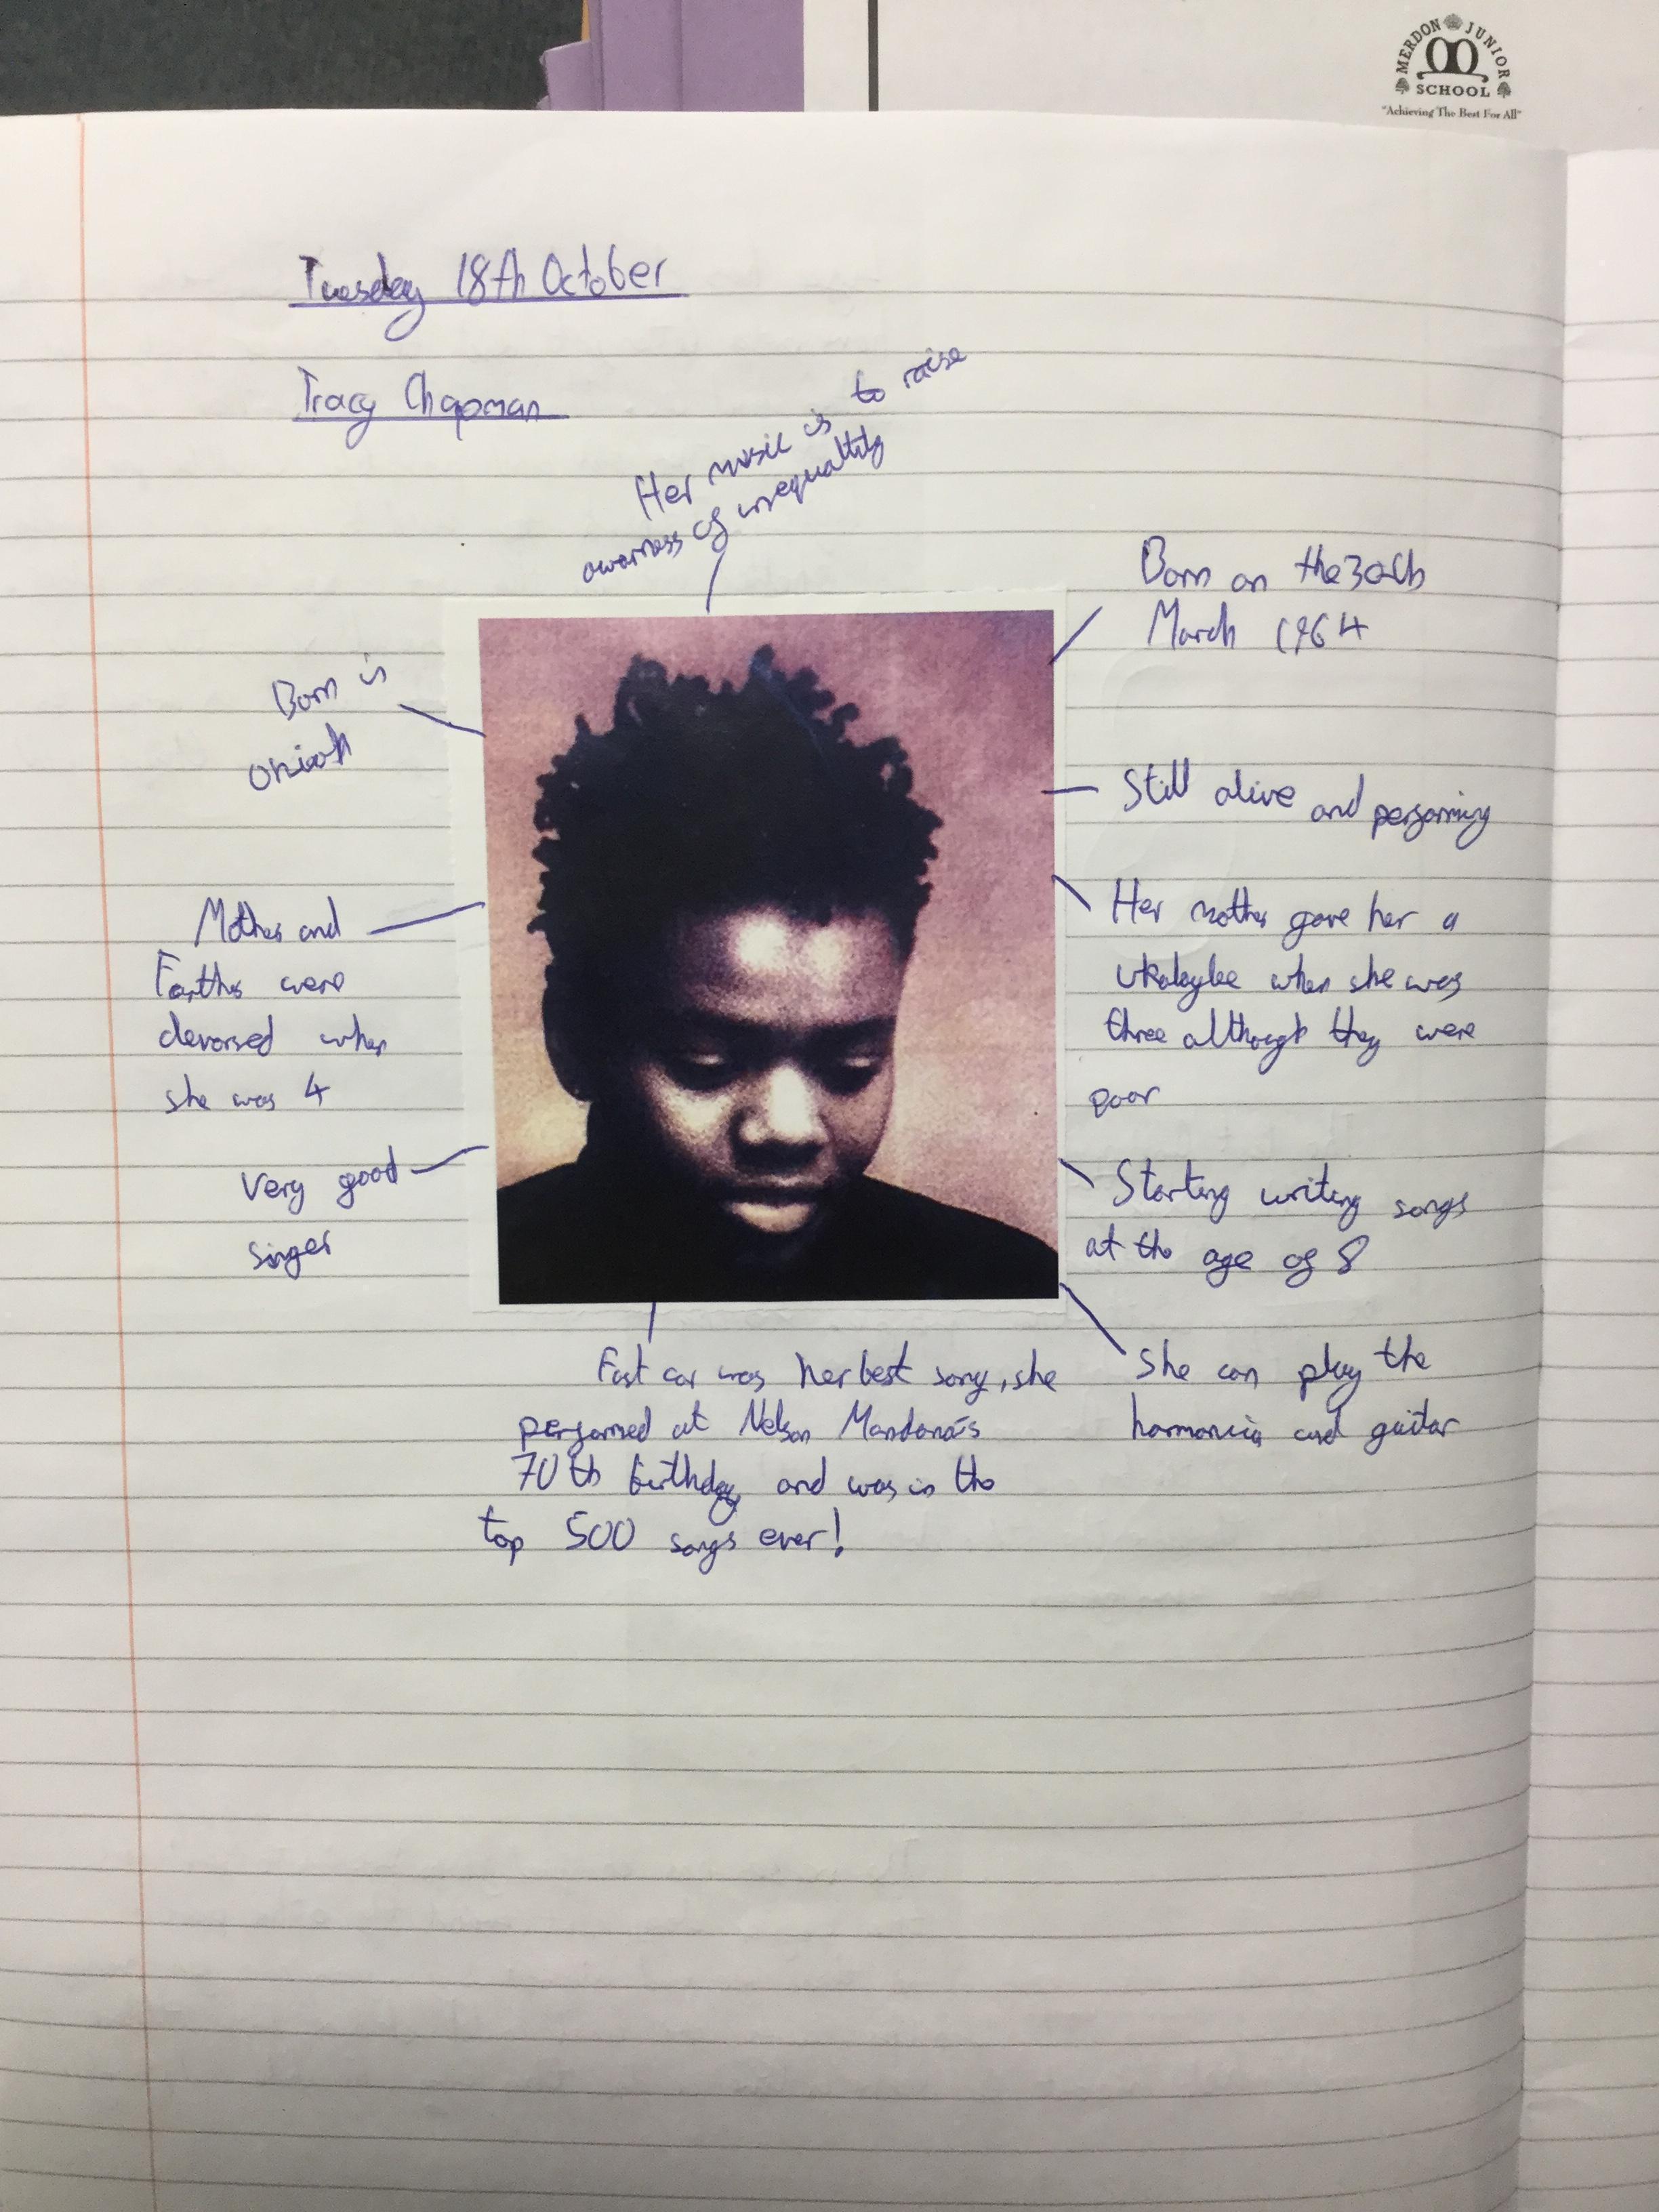 MERDON JUNIOR
SCHOOL
"Achieving The Best For All"
Tuesday 18th October
Tracy Chapman
Her music is to raise
awarness of inequaltity
Born on the 30th
March 1964
Born in
Still alive and performing
Mother and
Farther were
devorsed when
she was 4
Her mother gave her a
ukalaylee when she was
three although they were
poor
Very good
singer
Starting writing songs
at the age of 8
Fast car was her best song, she
performed at Nelson Mandana's
70th birthday and was in the
top 500 songs ever!
She can play the
harmoncia and guitar